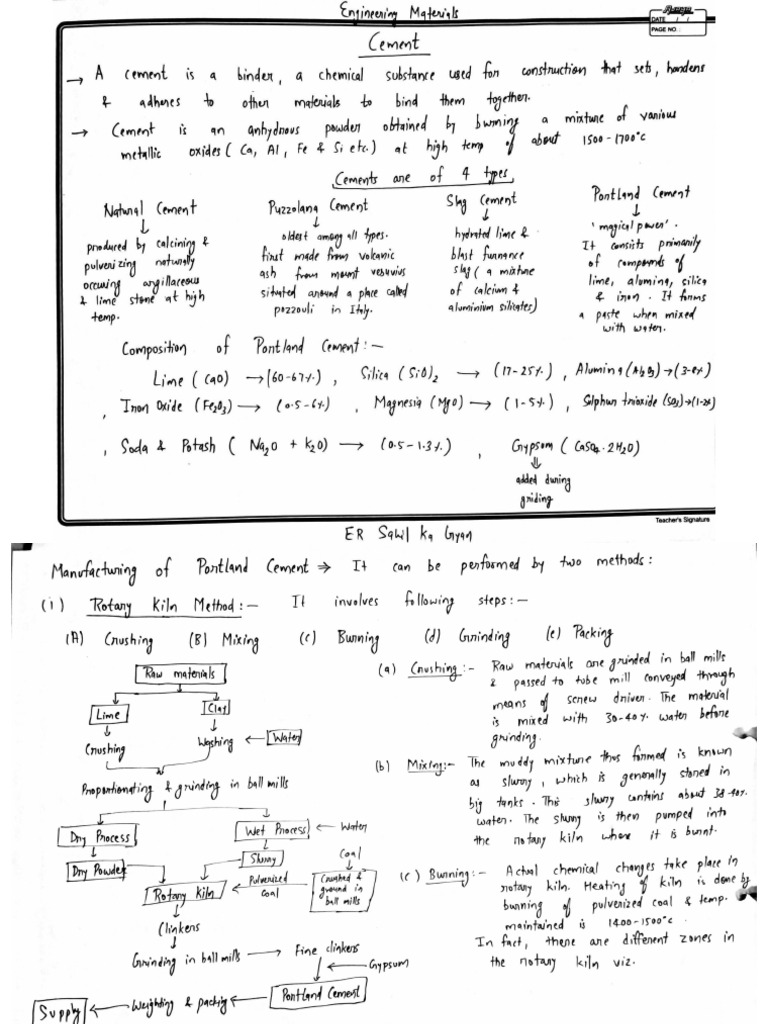 Engineering Materials
DATE / /
PAGE NO. :
Cement
→ A cement is a binder, a chemical substance used for construction that sets, hardens
& adheres to other materials to bind them together.
→ Cement is an anhydrous powder obtained by burning a mixture of various
metallic oxides (Ca, Al, Fe & Si etc.) at high temp of about 1500-1700°c
Cements are of 4 types,
Natural Cement
↓
produced by calcining &
pulverizing naturally
occuring argillaceous
& lime stone at high
temp.
Puzzolana Cement
↓
oldest among all types.
first made from volcanic
ash from mount vesuvius
situated around a place called
pozzouli in Italy.
Slag Cement
↓
hydrated lime &
blast furnance
slag (a mixture
of calcium &
aluminium silicates)
Portland Cement
↓
'magical power'.
It consists primarily
of compounds of
lime, alumina, silica
& iron. It forms
a paste when mixed
with water.
Composition of Portland Cement :-
Lime (CaO) → (60-67%), Silica (SiO)₂ → (17-25%), Alumina (Al₂O₃) → (3-8%)
, Iron Oxide (Fe₂O₃) → (0.5-6%) , Magnesia (MgO) → (1-5%) , Sulphur trioxide (SO₃) → (1-2%)
, Soda & Potash ( Na₂O + K₂O) → (0.5-1.3%) , Gypsum ( CaSO₄.2H₂O)
⇓
added during
griding
Teacher's Signature
ER Sahil Ka Gyan
Manufacturing of Portland Cement ⇒ It can be performed by two methods :
(i) Rotary Kiln Method :- It involves following steps :-
(A) Crushing (B) Mixing (c) Burning (d) Grinding (e) Packing
Raw materials
Lime
Clay
Crushing
Washing ← Water
Proportionating & grinding in ball mills
Dry Process
Wet Process ← Water
Dry Powder
Slurry
Coal
Rotary Kiln
Pulverized
coal
Crushed &
ground in
ball mills
Clinkers
↓
Grinding in ball mills → Fine clinkers
← Gypsum
Portland Cement
Supply ← Weighting & packing ←
(a) Crushing :- Raw materials are grinded in ball mills
& passed to tube mill conveyed through
means of screw driver. The material
is mixed with 30-40% water before
grinding.
(b) Mixing :- The muddy mixture thus formed is known
as slurry, which is generally stored in
big tanks. This slurry contains about 38-40%
water. The slurry is then pumped into
the rotary kiln where it is burnt.
(c) Burning :- Actual chemical changes take place in
rotary kiln. Heating of kiln is done by
burning of pulverized coal & temp.
maintained is 1400-1500°c
In fact, there are different zones in
the rotary kiln viz.